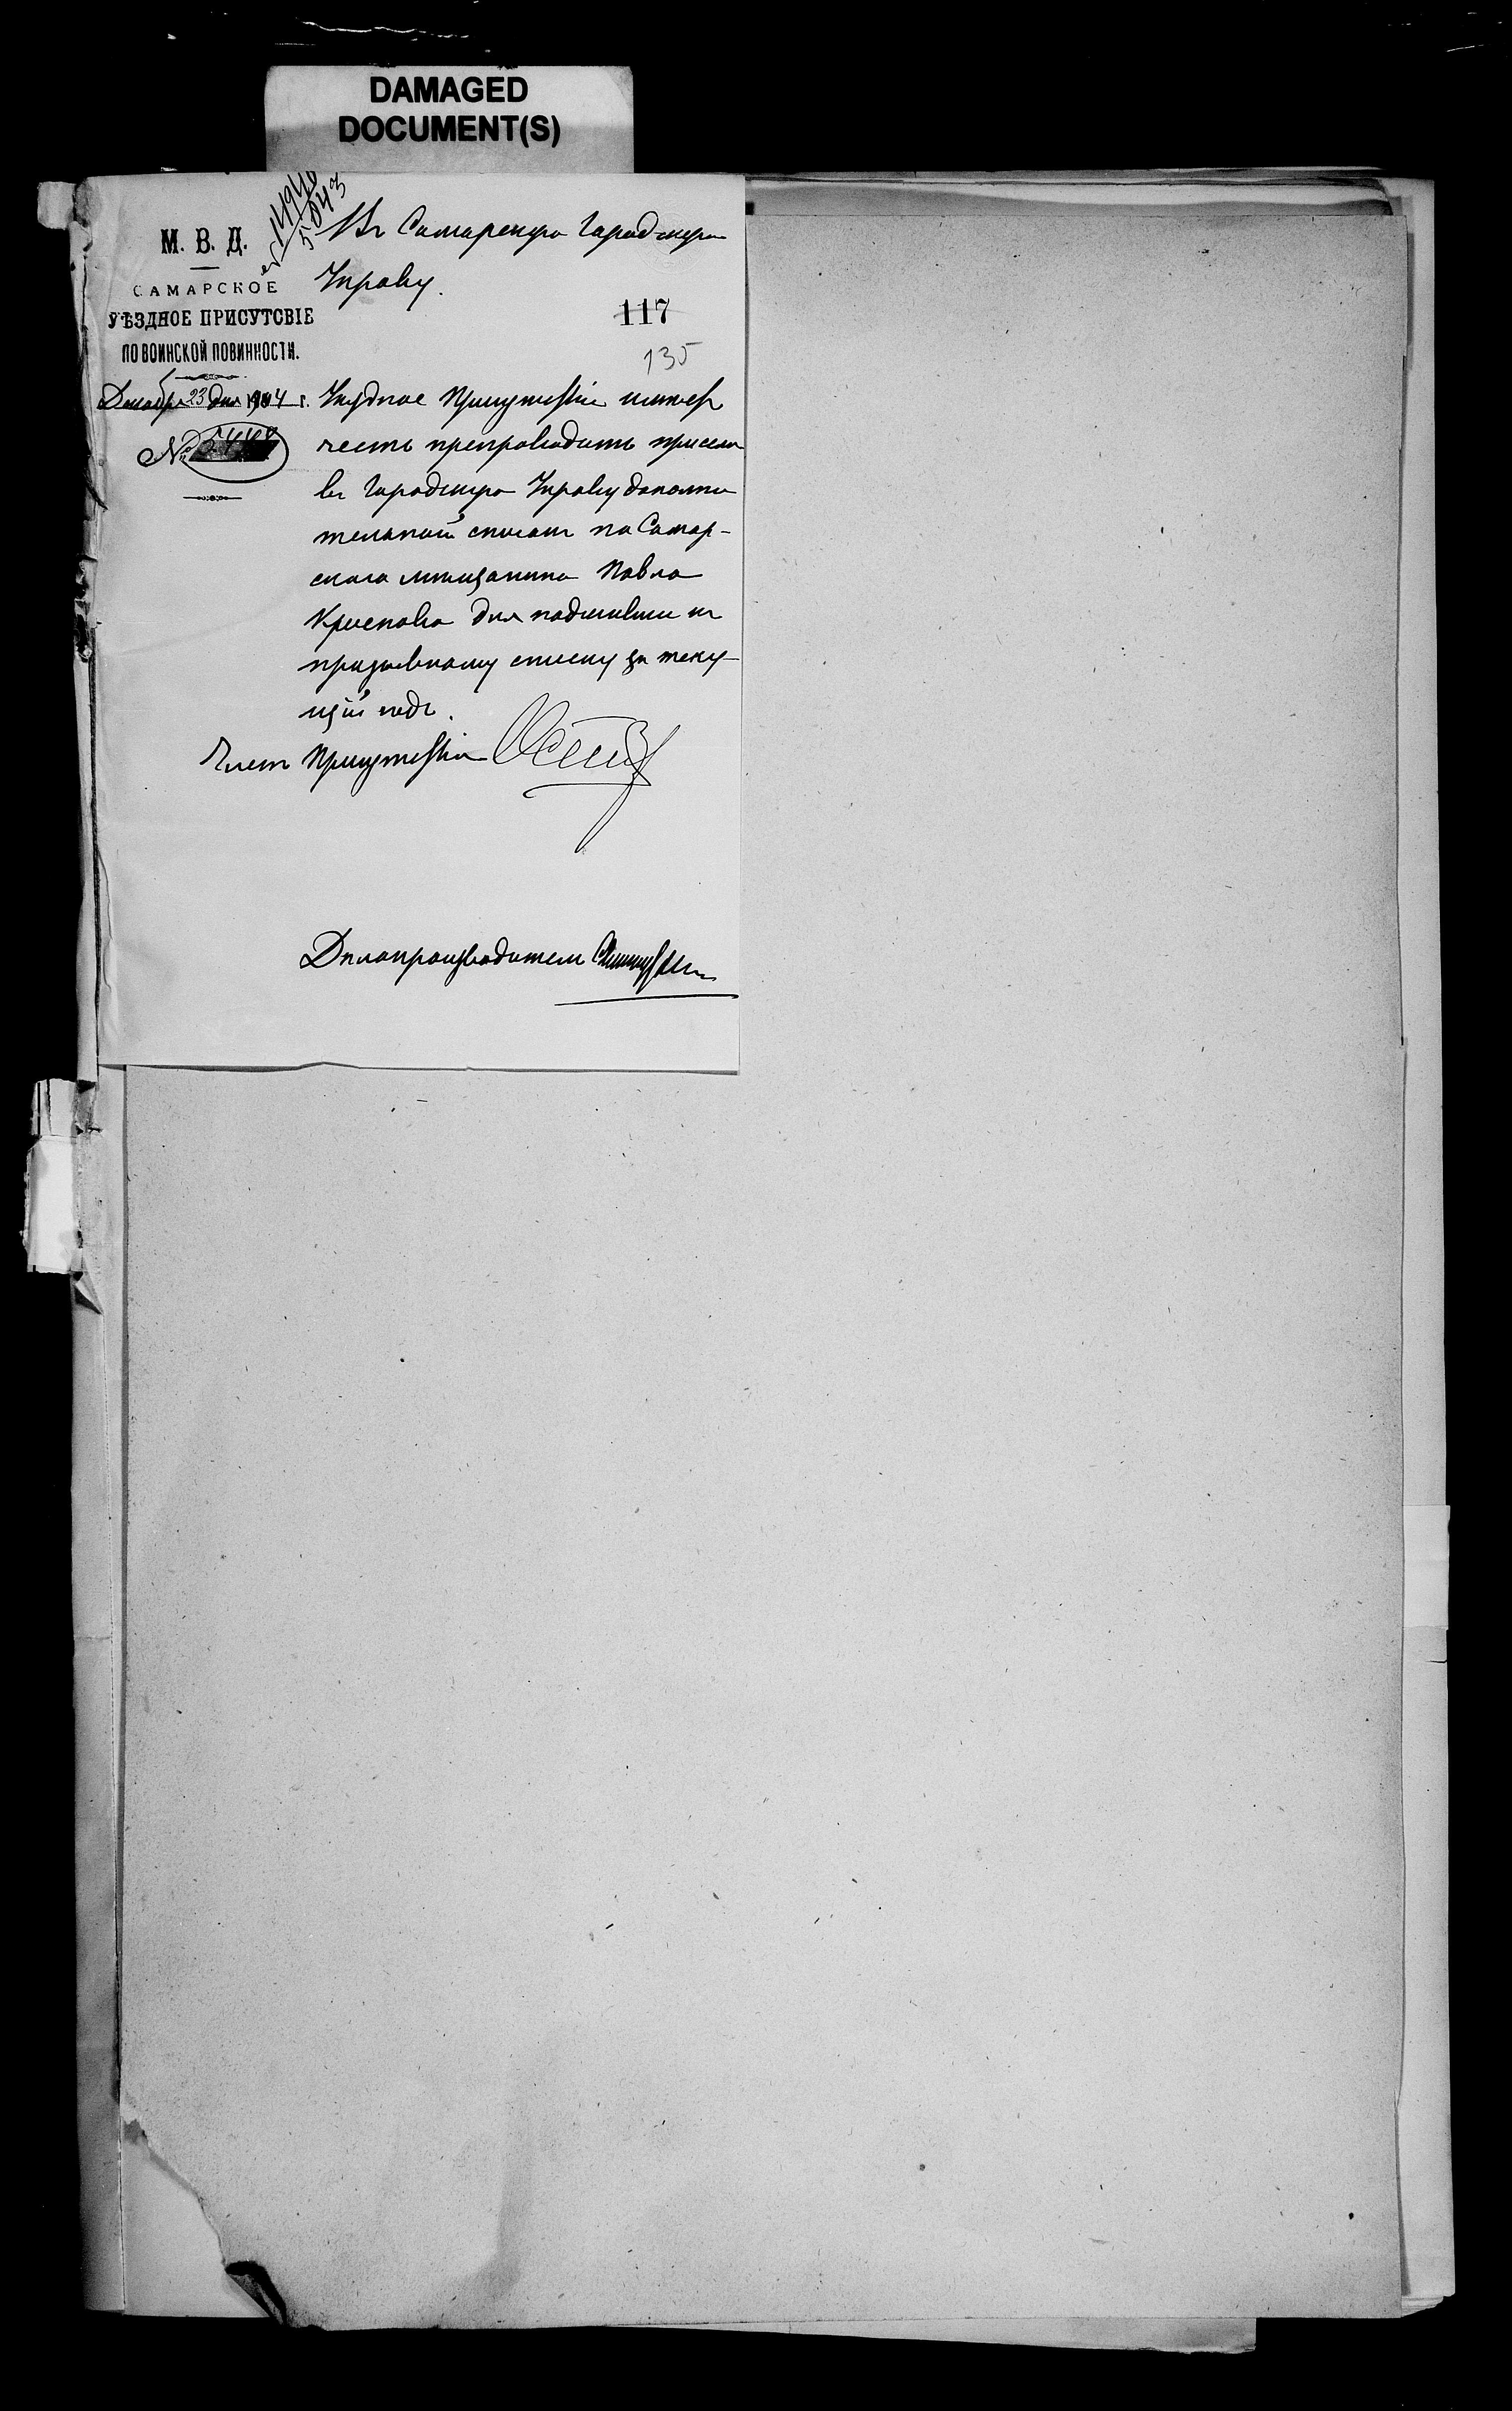 DAMAGED
DOCUMENT(S)
11946
5043
М. В. Д.
САМАРСКОЕ
УѢЗДНОЕ ПРИСУТСВІЕ
ПО ВОИНСКОЙ ПОВИННОСТИ.
Декабря 23 дня 1904 г.
№ 5448
Въ Самарскую Городскую
Управу.
117
135
Уѣздное Присутствіе имѣетъ
честь препроводить при семъ
въ Городскую Управу дополни
тельный списокъ на Самар-
скаго мѣщанина Павла
для подшивки къ
призывному списку за теку-
щій годъ.
Членъ Присутствія
Дѣлопроизводитель